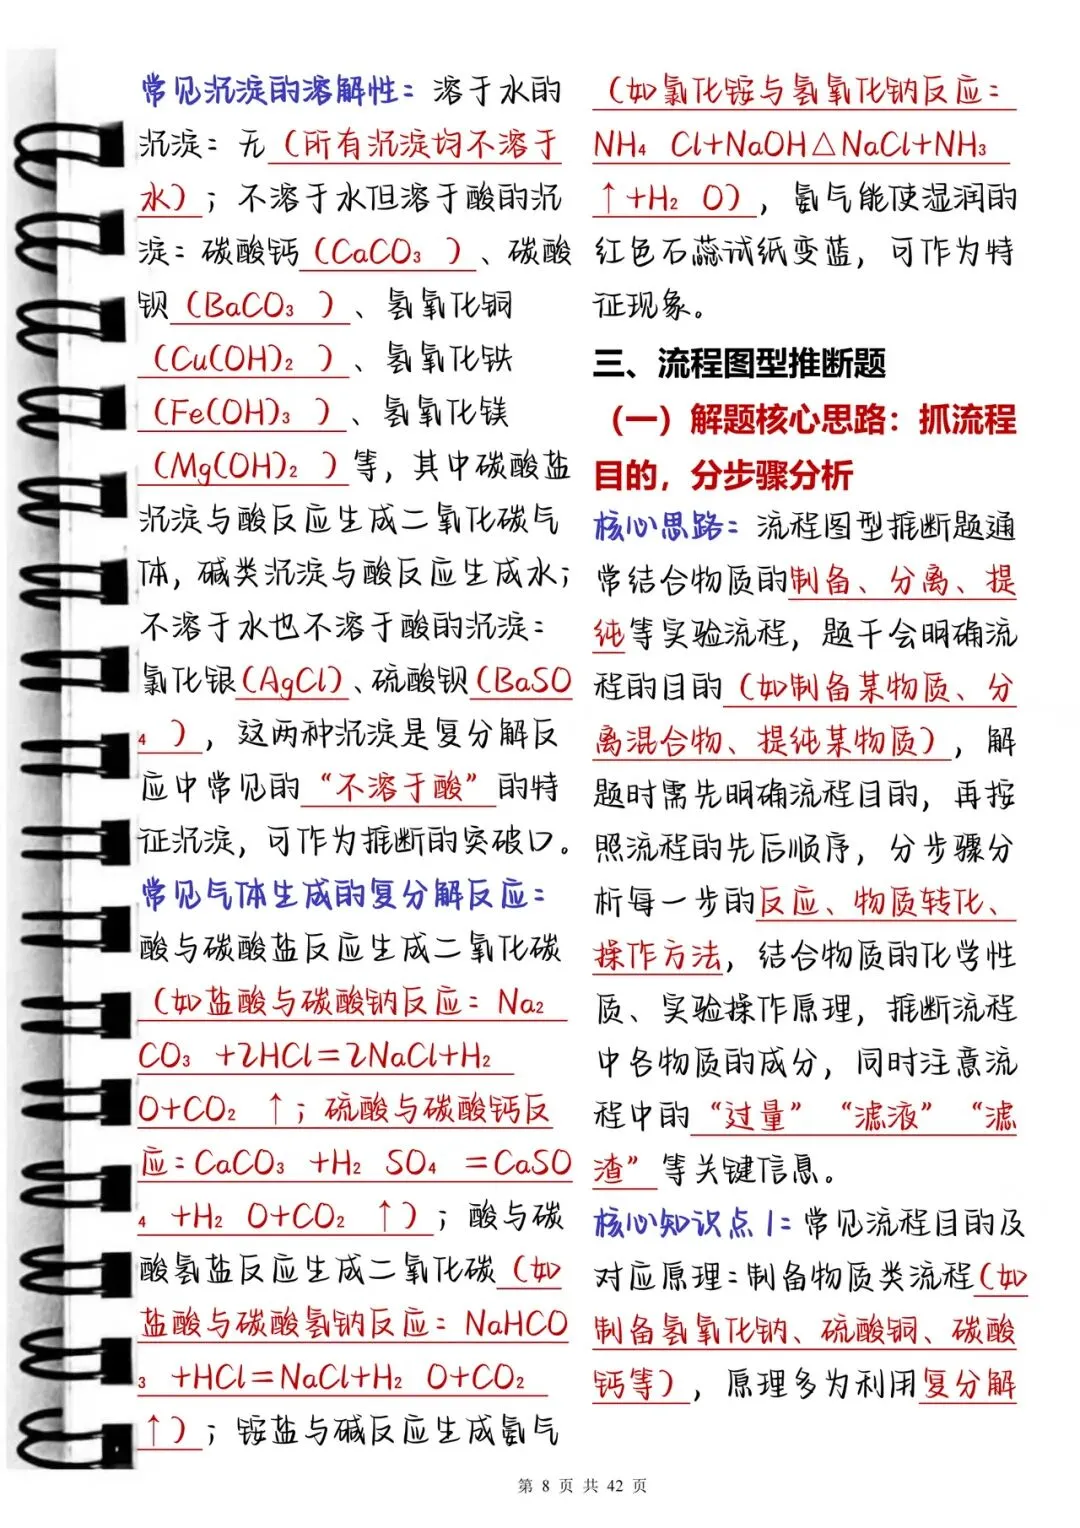 常见沉淀的溶解性：溶于水的
沉淀：无（所有沉淀均不溶于
水）；不溶于水但溶于酸的沉
淀：碳酸钙（CaCO₃ ）、碳酸
钡（BaCO₃ ）、氢氧化铜
（Cu(OH)₂ ）、氢氧化铁
（Fe(OH)₃ ）、氢氧化镁
（Mg(OH)₂ ）等，其中碳酸盐
沉淀与酸反应生成二氧化碳气
体，碱类沉淀与酸反应生成水；
不溶于水也不溶于酸的沉淀：
氯化银（AgCl）、硫酸钡（BaSO
₄ ），这两种沉淀是复分解反
应中常见的“不溶于酸”的特
征沉淀，可作为推断的突破口。
常见气体生成的复分解反应：
酸与碳酸盐反应生成二氧化碳
（如盐酸与碳酸钠反应：Na₂
CO₃ +2HCl=2NaCl+H₂
O+CO₂ ↑；硫酸与碳酸钙反
应：CaCO₃ +H₂ SO₄ =CaSO
₄ +H₂ O+CO₂ ↑）；酸与碳
酸氢盐反应生成二氧化碳（如
盐酸与碳酸氢钠反应：NaHCO
₃ +HCl=NaCl+H₂ O+CO₂
↑）；铵盐与碱反应生成氨气
（如氯化铵与氢氧化钠反应：
NH₄ Cl+NaOH△NaCl+NH₃
↑+H₂ O），氨气能使湿润的
红色石蕊试纸变蓝，可作为特
征现象。
三、流程图型推断题
（一）解题核心思路：抓流程
目的，分步骤分析
核心思路：流程图型推断题通
常结合物质的制备、分离、提
纯等实验流程，题干会明确流
程的目的（如制备某物质、分
离混合物、提纯某物质），解
题时需先明确流程目的，再按
照流程的先后顺序，分步骤分
析每一步的反应、物质转化、
操作方法，结合物质的化学性
质、实验操作原理，推断流程
中各物质的成分，同时注意流
程中的“过量”“滤液”“滤
渣”等关键信息。
核心知识点1：常见流程目的及
对应原理：制备物质类流程（如
制备氢氧化钠、硫酸铜、碳酸
钙等），原理多为利用复分解
第 8 页 共 42 页